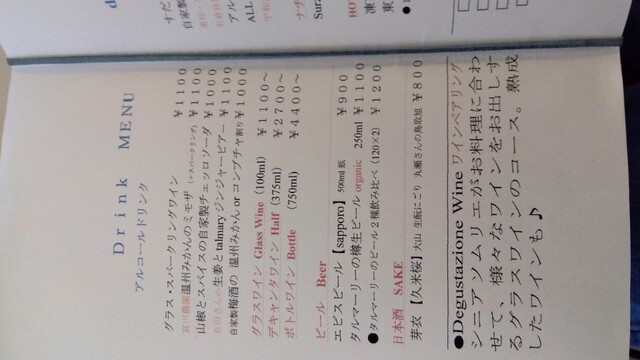 Drink MENU
アルコールドリンク
グラス・スパークリングワイン ￥１１００
宮川農園温州みかんのミモザ (＋スパークリング) ￥１１００
山椒とスパイスの自家製チェッロソーダ ￥１０００
石川さんの生姜とtalmaryジンジャービアー ￥１１００
自家製梅酒の 温州みかん or コンブチャ割り ￥１０００
グラスワイン Glass Wine (100ml) ￥１１００～
デキャンタワイン Half (375ml) ￥２７００～
ボトルワイン Bottle (750ml) ￥４４００～
ビール Beer
ヱビスビール【sapporo】500ml 瓶 ￥９００
タルマーリーの樽生ビール organic 250ml ￥１１００
●タルマーリーのビール２種飲み比べ (120×2) ￥１２００
日本酒 SAKE
芽衣 【久米桜】大山 生酛にごり 丸瀬さんの鳥取旭 ￥８００
●Degustazione Wine ワインペアリング
シニアソムリエがお料理に合わ
せて、様々なワインをお出しす
るグラスワインのコース。熟成
したワインも♪
すだ
自家製
アル
ALL
ナチ
Sur.
HO
凍
東